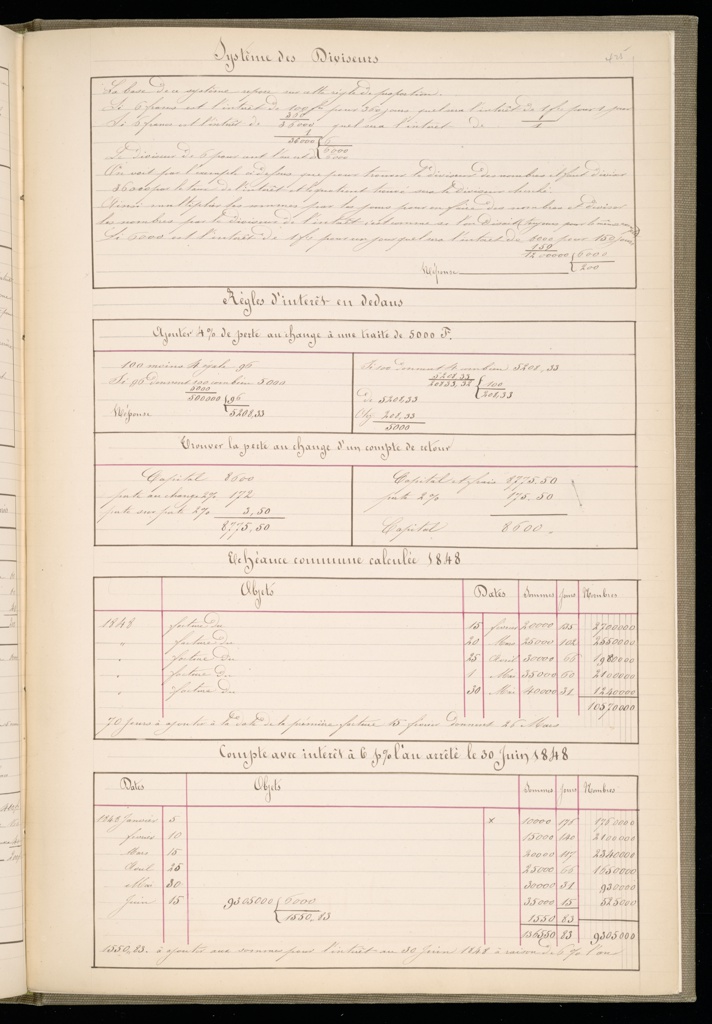 Système des Diviseurs
La base de ce système repose sur cette règle de proportion.
Si 6 francs est l'intérêt de 100 f pour 360 jours quel sera l'intérêt de 1 f pour 1 jour
Si 6 francs est l'intérêt de 36000 quel sera l'intérêt de 1
36000 6
6000
Le diviseur de 6 pour cent est de 6000
On voit par l'exemple ci dessus que pour trouver le diviseur des nombres il faut diviser
36000 par le taux de l'intérêt et le quotient trouvé sera le diviseur cherché.
les nombres par le diviseur
Si 6000 est l'intérêt de 1 f pour un jour quel sera l'intérêt de 8000 pour 150 jours
150
1200000 6000
Réponse 200
Règles d'intérêt en dedans
Ajouter 4% de perte au change à une traite de 5000 F.
100 moins 4 égale 96
Si 96 donnent 100 combien 5000
5000
500000 96
Réponse 5208,33
Si 100 donnent 4 combien 5208,33
5208,33
20833,32 100
208,33
de 5208,33
Otez 208,33
5000
Trouver la perte au change d'un compte de retour
Capital 8600
perte au change 2% 172
perte sur perte 2% 3,50
8775,50
Capital et frais 8775,50
perte 2% 175,50
Capital 8600 .
Echéance commune calculée 1848
Objets Dates Sommes Jours Nombres
1848 facture du 15 février 20000 135 2700000
" facture du 20 Mars 25000 102 2550000
" facture du 25 Avril 30000 66 1980000
" facture du 1 Mai 35000 60 2100000
" facture du 30 Mai 40000 31 1240000
10570000
70 Jours à ajouter à la date de la première facture 15 février donnent 26 Mars
Compte avec intérêt à 6 p% l'an arrêté le 30 Juin 1848
Dates Objets Sommes Jours Nombres
Janvier 5 x 10000 176 1760000
février 10 15000 140 2100000
Mars 15 20000 117 2340000
Avril 25 25000 66 1650000
Mai 30 30000 31 930000
Juin 15 9305000 6000 35000 15 525000
1550,83 1550 83
136550 83 9305000
1550,83 à ajouter aux sommes pour l'intérêt au 30 Juin 1848 à raison de 6 % l'an